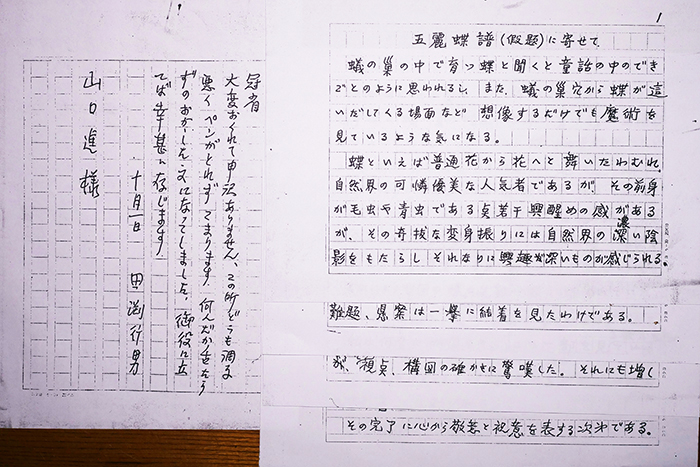 冠省
大変おくれて申訳ありません、この所どうも調
悪く ペンがとれず こまります 何んだか舌たら
ずのおかしな文になってしました。御役に立
てば幸甚に存じます
十月一日 田淵行男
山口進様
1
五麗蝶譜(仮題)に寄せて
蟻の巣の中で育つ蝶と聞くと童話の中のでき
ごとのように思われるし、また、蟻の巣穴から蝶が這
いだしてくる場面など 想像するだけでも魔術を
見ているような気になる。
蝶といえば普通花から花へと舞いたわむれ、
自然界の可憐優美な人気者であるが その前身
が毛虫や青虫である点若干興醒めの感がある
が、その奇抜な変身振りには自然界の深い陰
濃
影をもたらし それなりに興趣が深いものが感じられる
難題、懸案は一挙に結着を見たわけである。
が、視点、構図の確かさに驚嘆した。それにも増し
その完了に心から敬意と祝意を表する次第である。